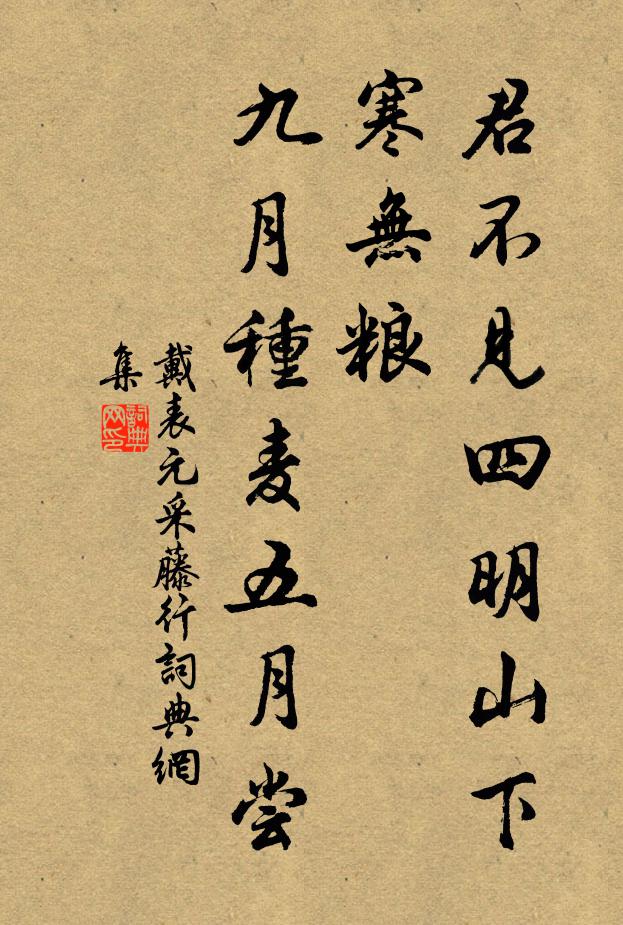 君不见四明山下
寒無粮
九月種麦五月尝
戴表元采藤行詞典網
集
詞典网印